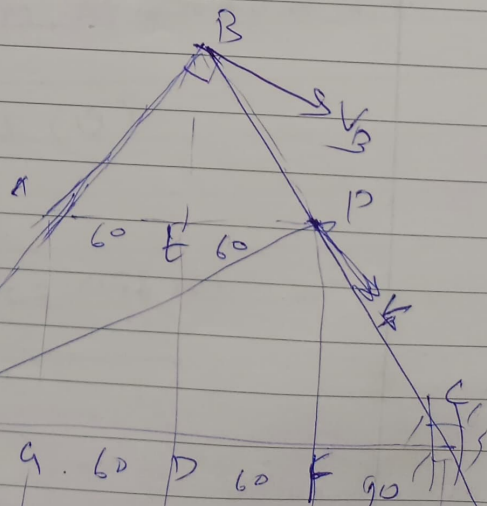 B
V_B
A
P
60
E
60
C
G
60
D
60
F
90